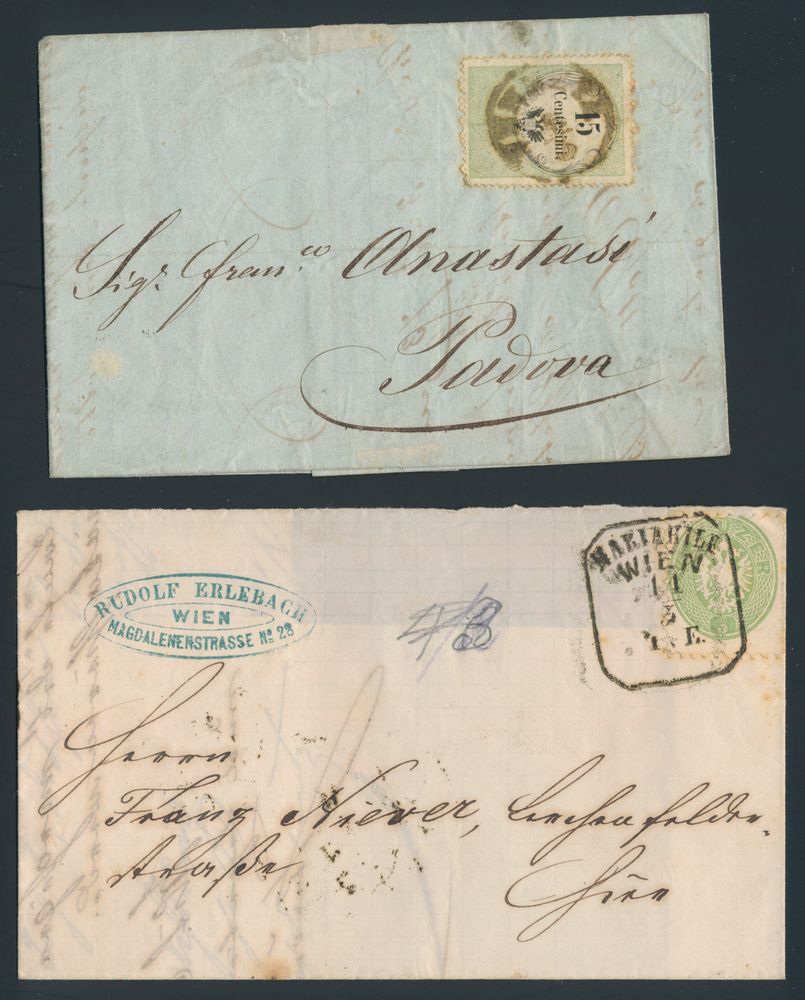 15
Centesimi
Sigr. Franco. Anastasi
Padova
RUDOLF ERLEBACH
WIEN
MAGDALENENSTRASSE No 23
MARIAHILF
WIEN
11
3
1. E.
Herrn
Franz Niever, Lerchenfelder-
straße
Hier